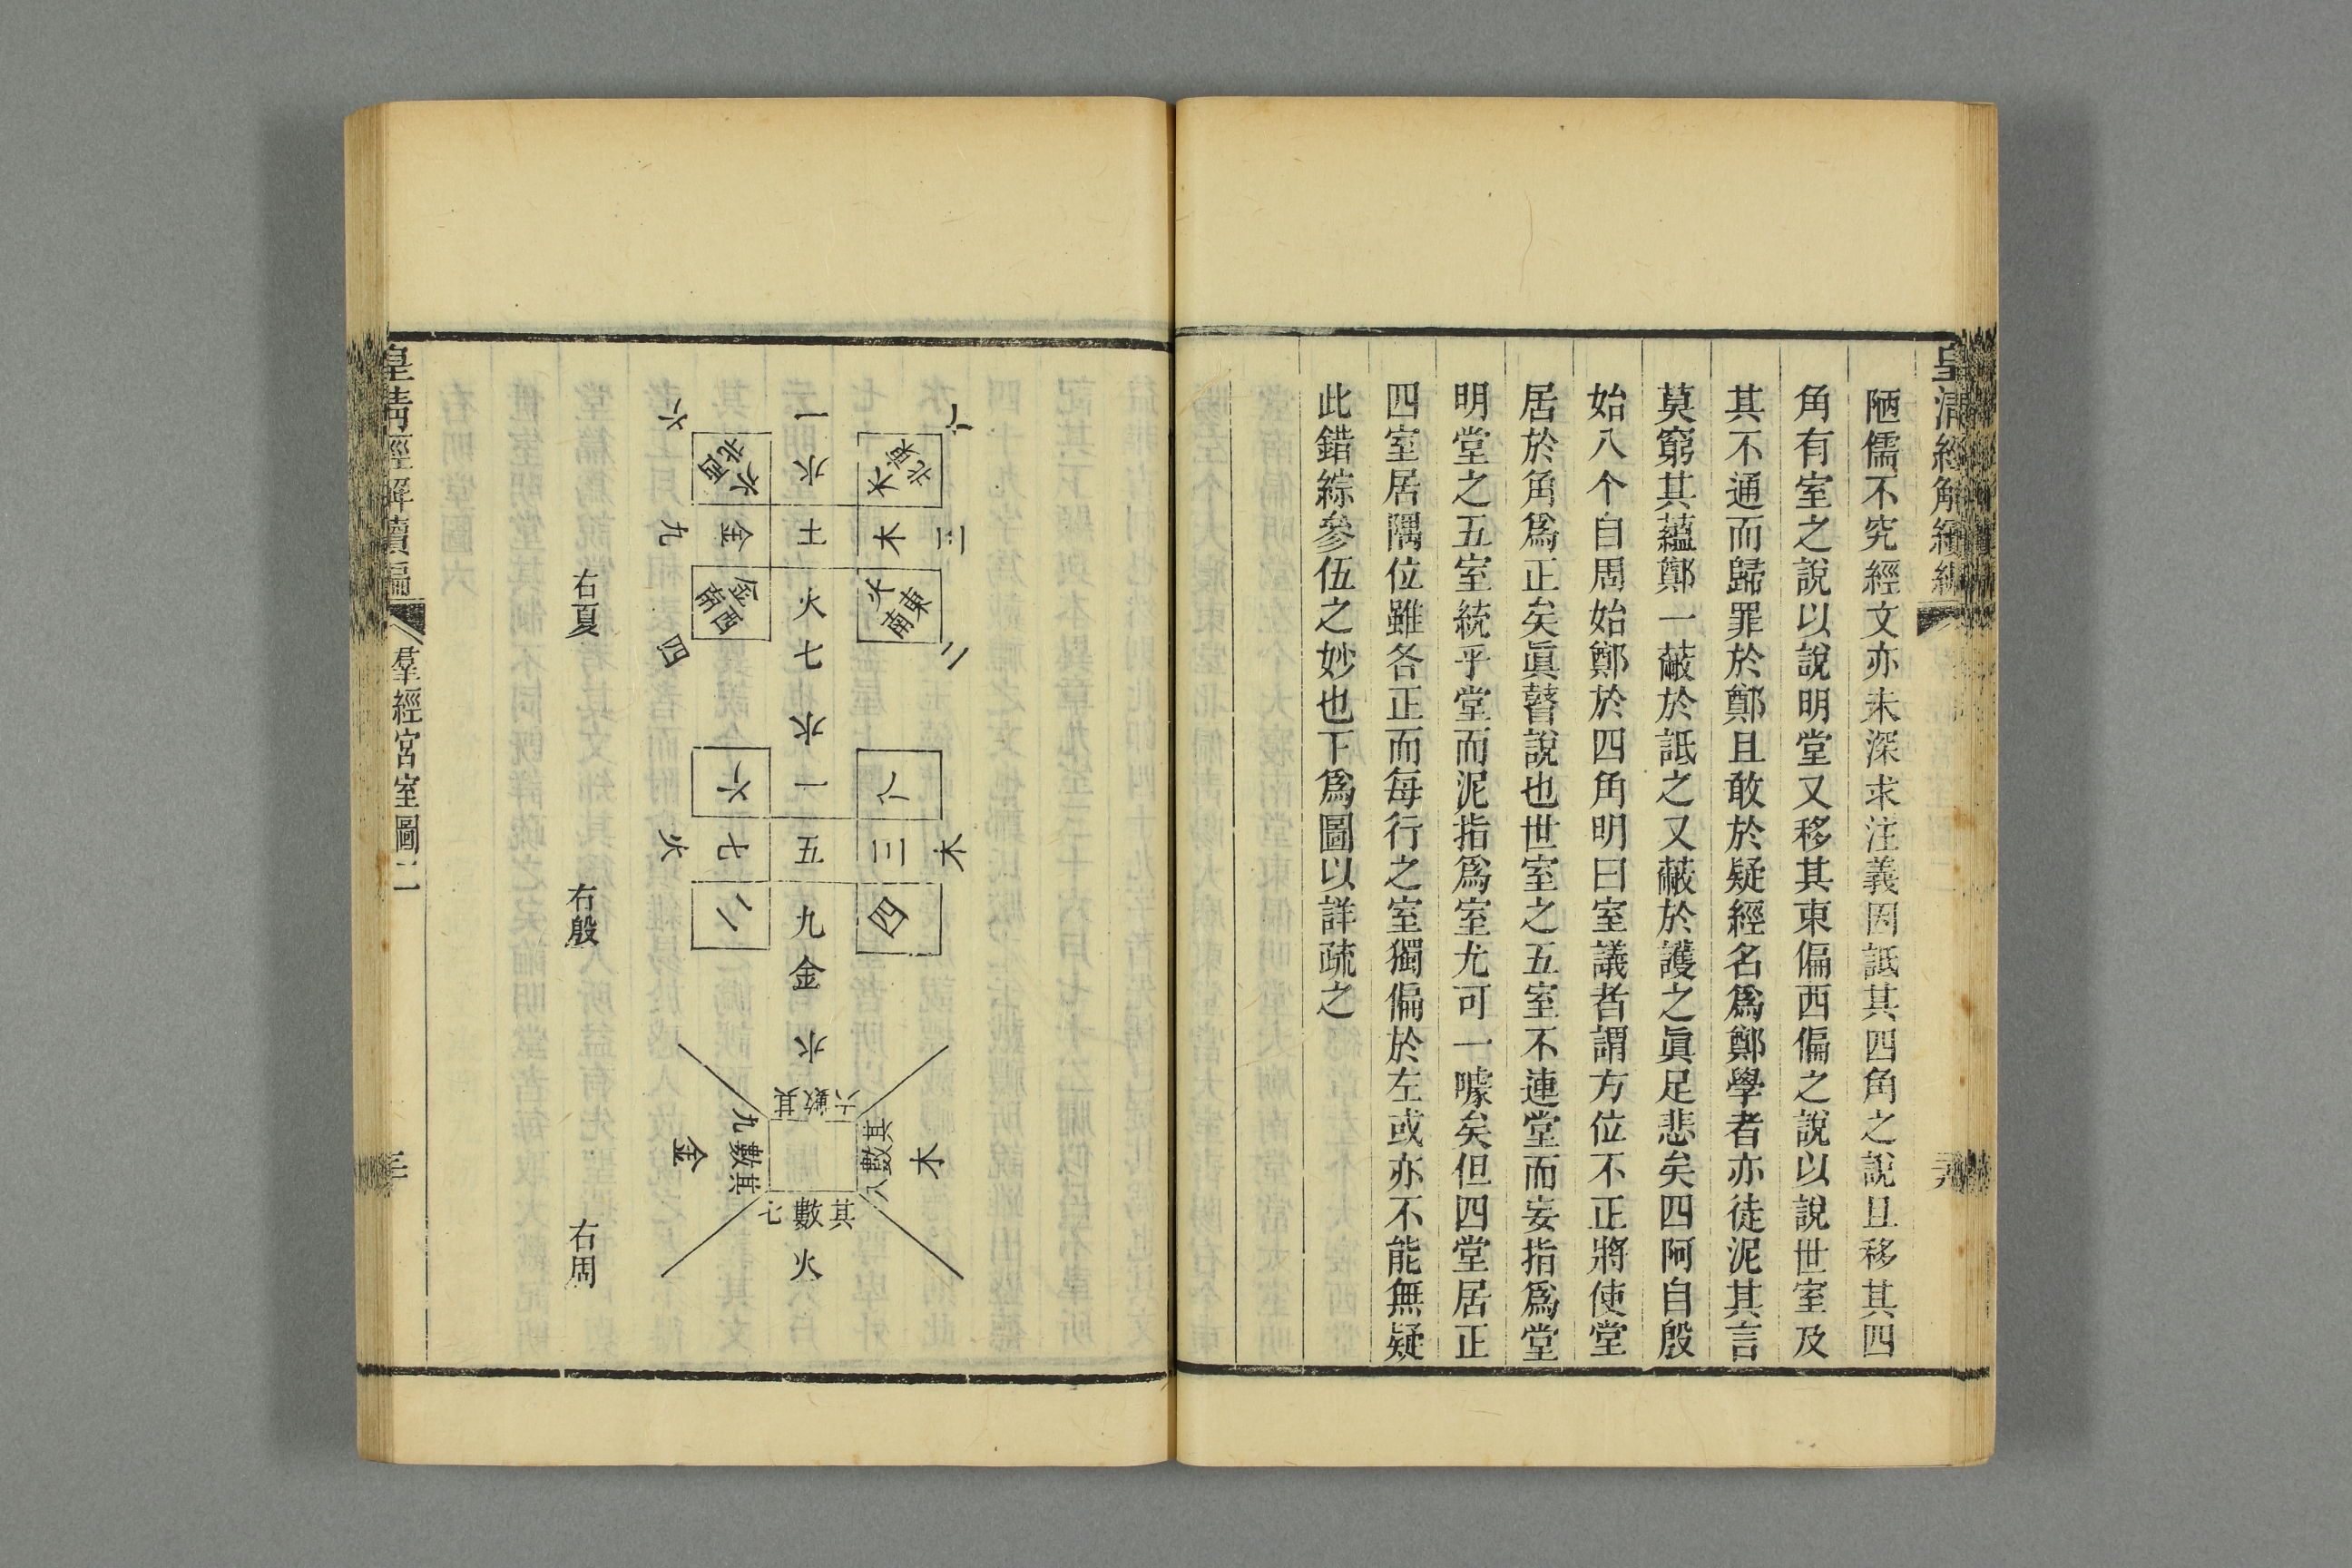 皇清經解續編
陋儒不究經文亦未深求注義因詆其四角之說且移其四
角有室之說以說明堂又移其東偏西偏之說以說世室及
其不通而歸罪於鄭且敢於疑經名爲鄭學者亦徒泥其言
莫窮其蘊鄭一蔽於詆之又蔽於護之眞足悲矣四阿自殷
始八个自周始鄭於四角明曰室議者謂方位不正將使堂
居於角爲正矣眞瞽說也世室之五室不連堂而妄指爲堂
明堂之五室統乎堂而泥指爲室尤可一噱矣但四堂居正
四室居隅位雖各正而每行之室獨偏於左或亦不能無疑
此錯綜參伍之妙也下爲圖以詳疏之
六
東北
木
木
三
火
東南
二
一
水
土
火
七
六
西北
水
金
九
金
西南
四
右夏
水
一
五
九
金
八
三
木
四
六
七
火
二
右殷
水
其數六
其數八
木
其數七
火
其數九
金
右周
皇清經解續編
羣經宮室圖二